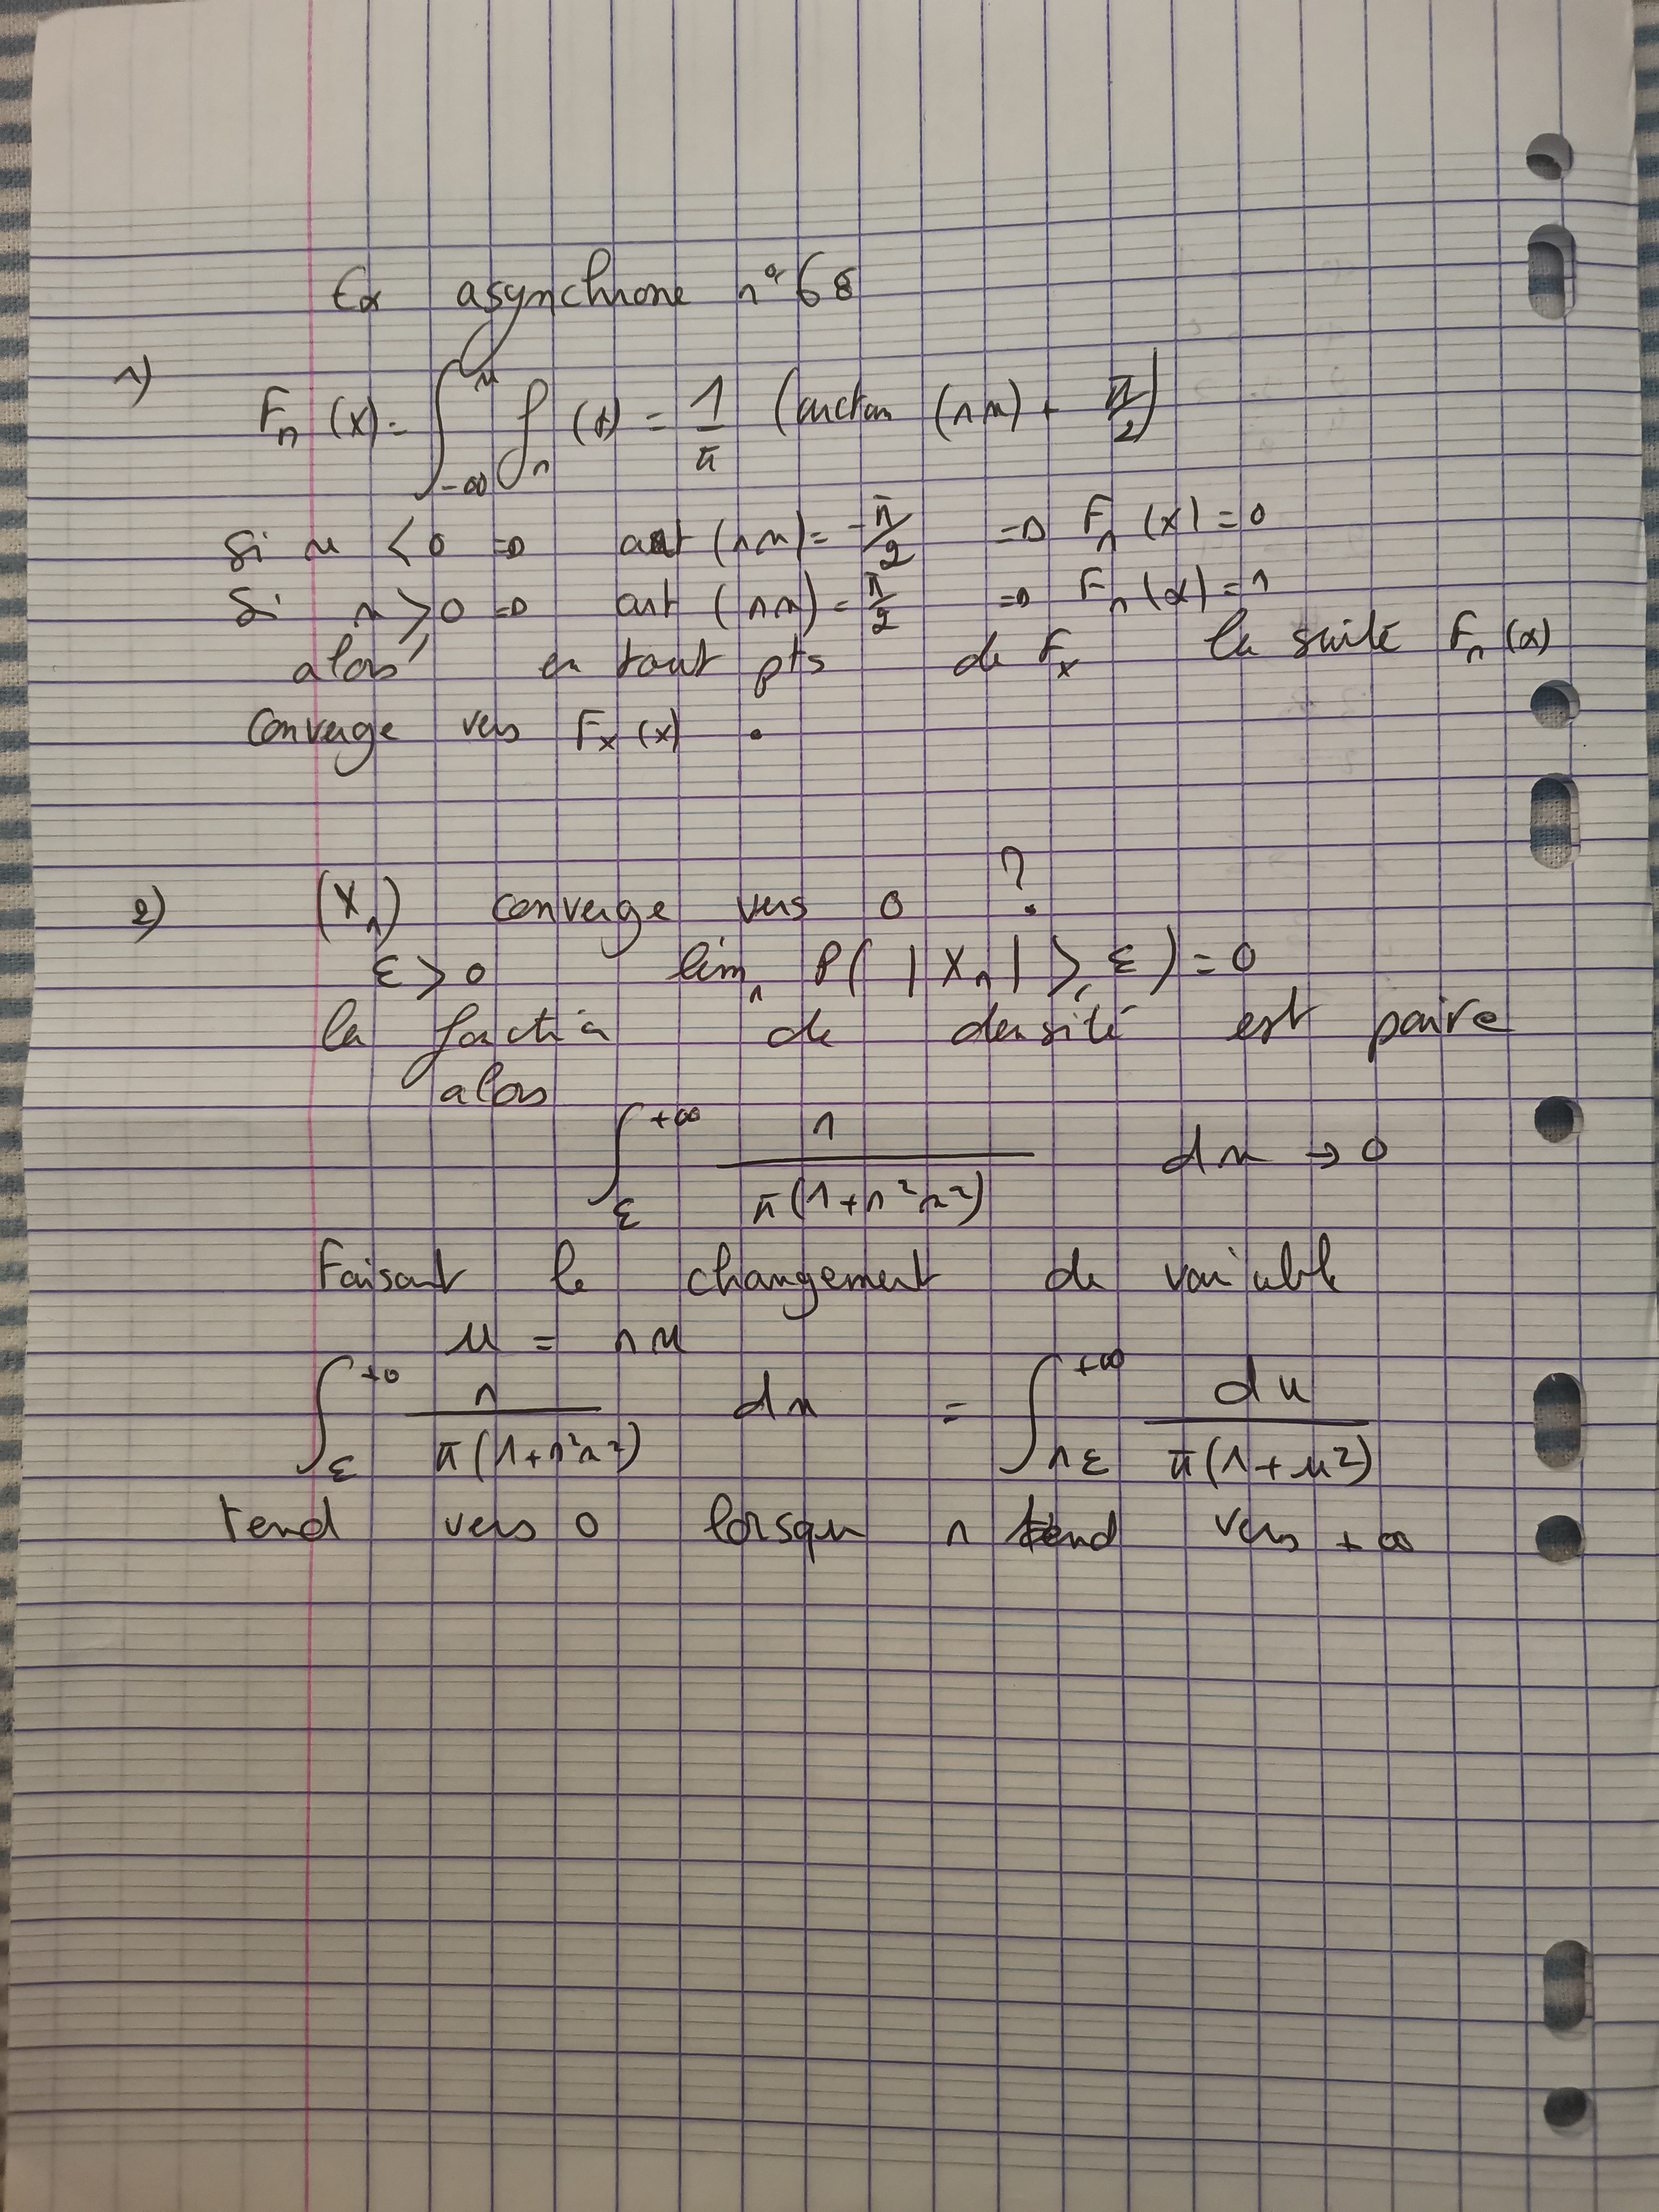 Ex asynchrone n° 68
1)
Fn (x) = ∫_{-∞}^{x} fn (t) = 1/π (arctan (nx) + π/2)
Si x < 0 => arct (nx) = -π/2 => Fn (x) = 0
Si x > 0 => arct (nx) = π/2 => Fn (x) = 1
alors en tout pts de Fx la suite Fn (x)
converge vers Fx (x) .
2) (Xn) converge vers 0 ?
ε > 0 lim n P( |Xn| ⩾ ε ) = 0
la fonction de densité est paire
alors
∫_{ε}^{+∞} n / π(1+n²x²) dx → 0
Faisant le changement de variable
u = nx
∫_{ε}^{+∞} n / π(1+n²x²) dx = ∫_{nε}^{+∞} du / π(1+u²)
tend vers 0 lorsque n tend vers +∞